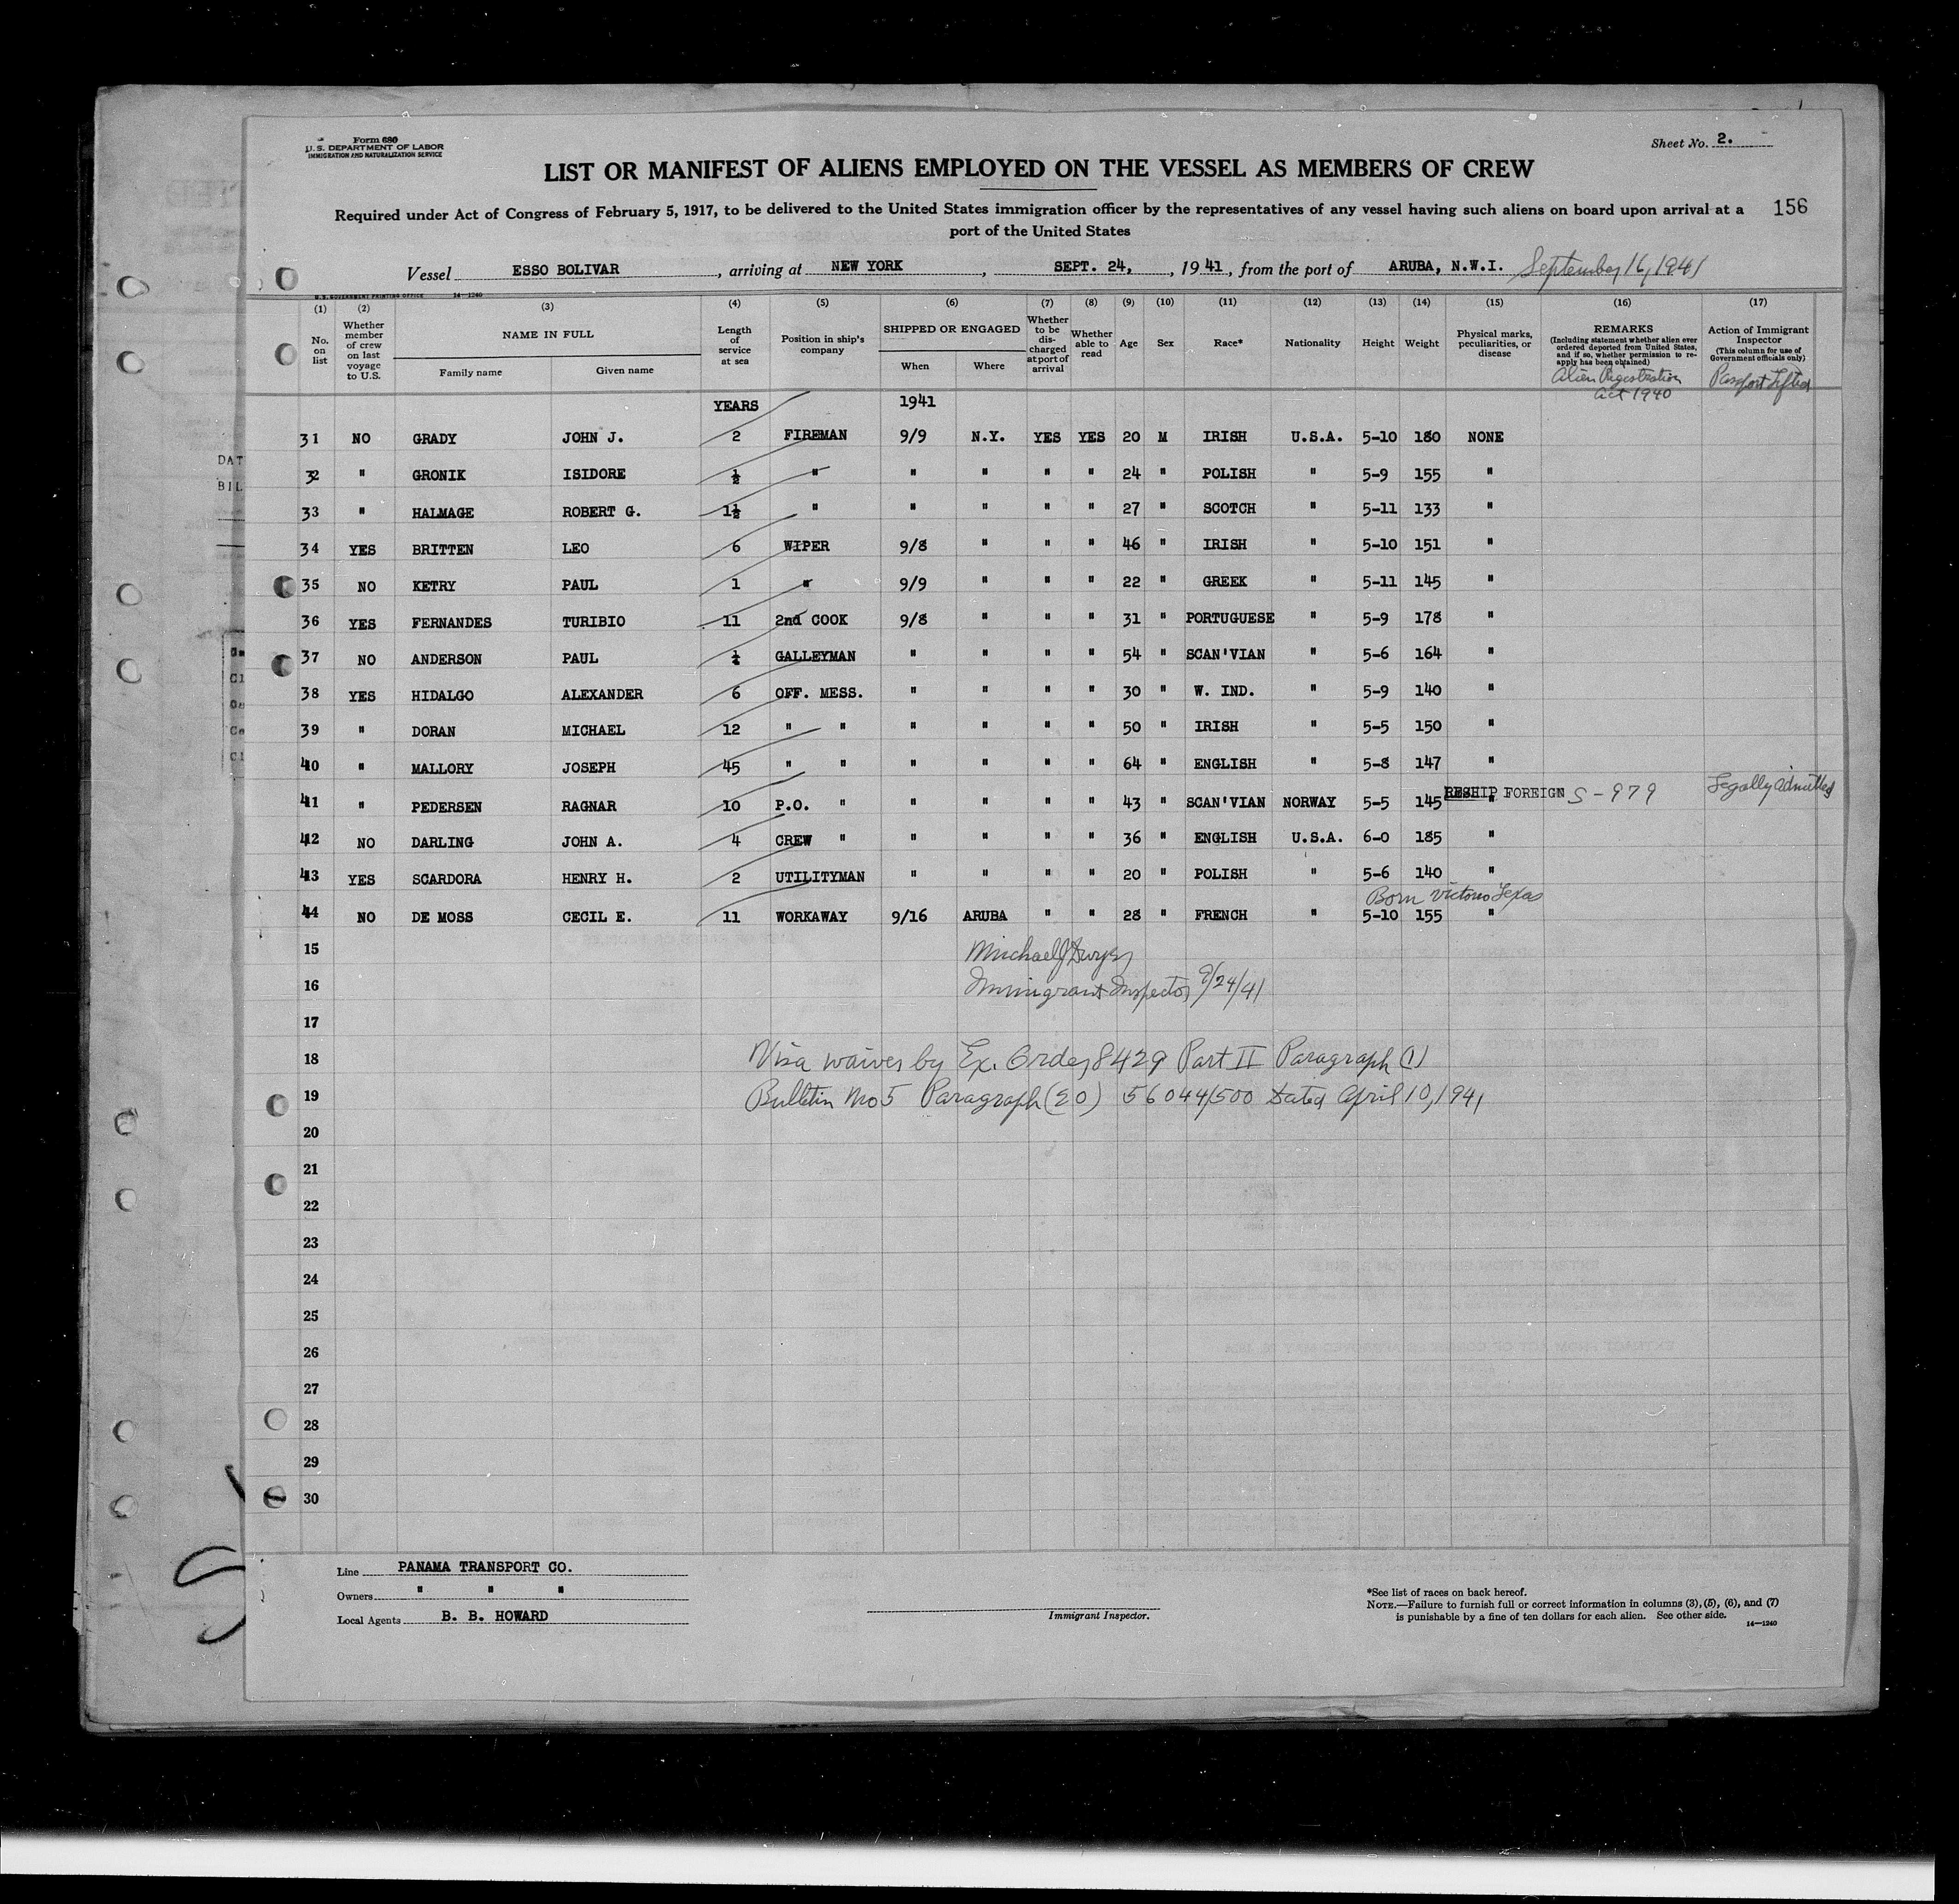 Form 680
U. S. DEPARTMENT OF LABOR
IMMIGRATION AND NATURALIZATION SERVICE
Sheet No. 2.
LIST OR MANIFEST OF ALIENS EMPLOYED ON THE VESSEL AS MEMBERS OF CREW
Required under Act of Congress of February 5, 1917, to be delivered to the United States immigration officer by the representatives of any vessel having such aliens on board upon arrival at a
port of the United States
156
Vessel ESSO BOLIVAR, arriving at NEW YORK, SEPT. 24, , 1941, from the port of ARUBA, N.W.I. September 16, 1941
U.S. GOVERNMENT PRINTING OFFICE 14—1240
(1) (2) (3) (4) (5) (6) (7) (8) (9) (10) (11) (12) (13) (14) (15) (16) (17)
No. on list
Whether member of crew on last voyage to U.S.
NAME IN FULL
Family name
Given name
Length of service at sea
Position in ship's company
SHIPPED OR ENGAGED
When
Where
Whether to be discharged at port of arrival
Whether able to read
Age
Sex
Race*
Nationality
Height
Weight
Physical marks, peculiarities, or disease
REMARKS
(Including statement whether alien ever ordered deported from United States, and if so, whether permission to reapply has been obtained)
Alien Registration
Act 1940
Action of Immigrant Inspector
(This column for use of Government officials only)
Passport Lifted
YEARS 1941
31 NO GRADY JOHN J. 2 FIREMAN 9/9 N.Y. YES YES 20 M IRISH U.S.A. 5-10 180 NONE
32 " GRONIK ISIDORE ½ " " " " " 24 " POLISH " 5-9 155 "
33 " HALMAGE ROBERT G. 1½ " " " " " 27 " SCOTCH " 5-11 133 "
34 YES BRITTEN LEO 6 WIPER 9/8 " " " 46 " IRISH " 5-10 151 "
35 NO KETRY PAUL 1 " 9/9 " " " 22 " GREEK " 5-11 145 "
36 YES FERNANDES TURIBIO 11 2nd COOK 9/8 " " " 31 " PORTUGUESE " 5-9 178 "
37 NO ANDERSON PAUL GALLEYMAN " " " " 54 " SCAN'VIAN " 5-6 164 "
38 YES HIDALGO ALEXANDER 6 OFF. MESS. " " " " 30 " W. IND. " 5-9 140 "
39 " DORAN MICHAEL 12 " " " " " " 50 " IRISH " 5-5 150 "
40 " MALLORY JOSEPH 45 " " " " " " 64 " ENGLISH " 5-8 147 "
41 " PEDERSEN RAGNAR 10 P.O. " " " " " 43 " SCAN'VIAN NORWAY 5-5 145 " RESHIP FOREIGN S-979 Legally admitted
42 NO DARLING JOHN A. 4 CREW " " " " " 36 " ENGLISH U.S.A. 6-0 185 "
43 YES SCARDORA HENRY H. 2 UTILITYMAN " " " " 20 " POLISH " 5-6 140 "
Born Victoria Texas
44 NO DE MOSS CECIL E. 11 WORKAWAY 9/16 ARUBA " " 28 " FRENCH " 5-10 155 "
15 Michael J Dwyer
16 Immigrant Inspector 9/24/41
17
18 Visa waives by Ex. Order 8429 Part II Paragraph (1)
19 Bulletin No 5 Paragraph (20) 56044/500 dated April 10, 1941
20
21
22
23
24
25
26
27
28
29
30
Line PANAMA TRANSPORT CO.
Owners " " "
Local Agents B. B. HOWARD
Immigrant Inspector.
*See list of races on back hereof.
NOTE.—Failure to furnish full or correct information in columns (3), (5), (6), and (7)
is punishable by a fine of ten dollars for each alien. See other side.
14—1240
DAT
BIL